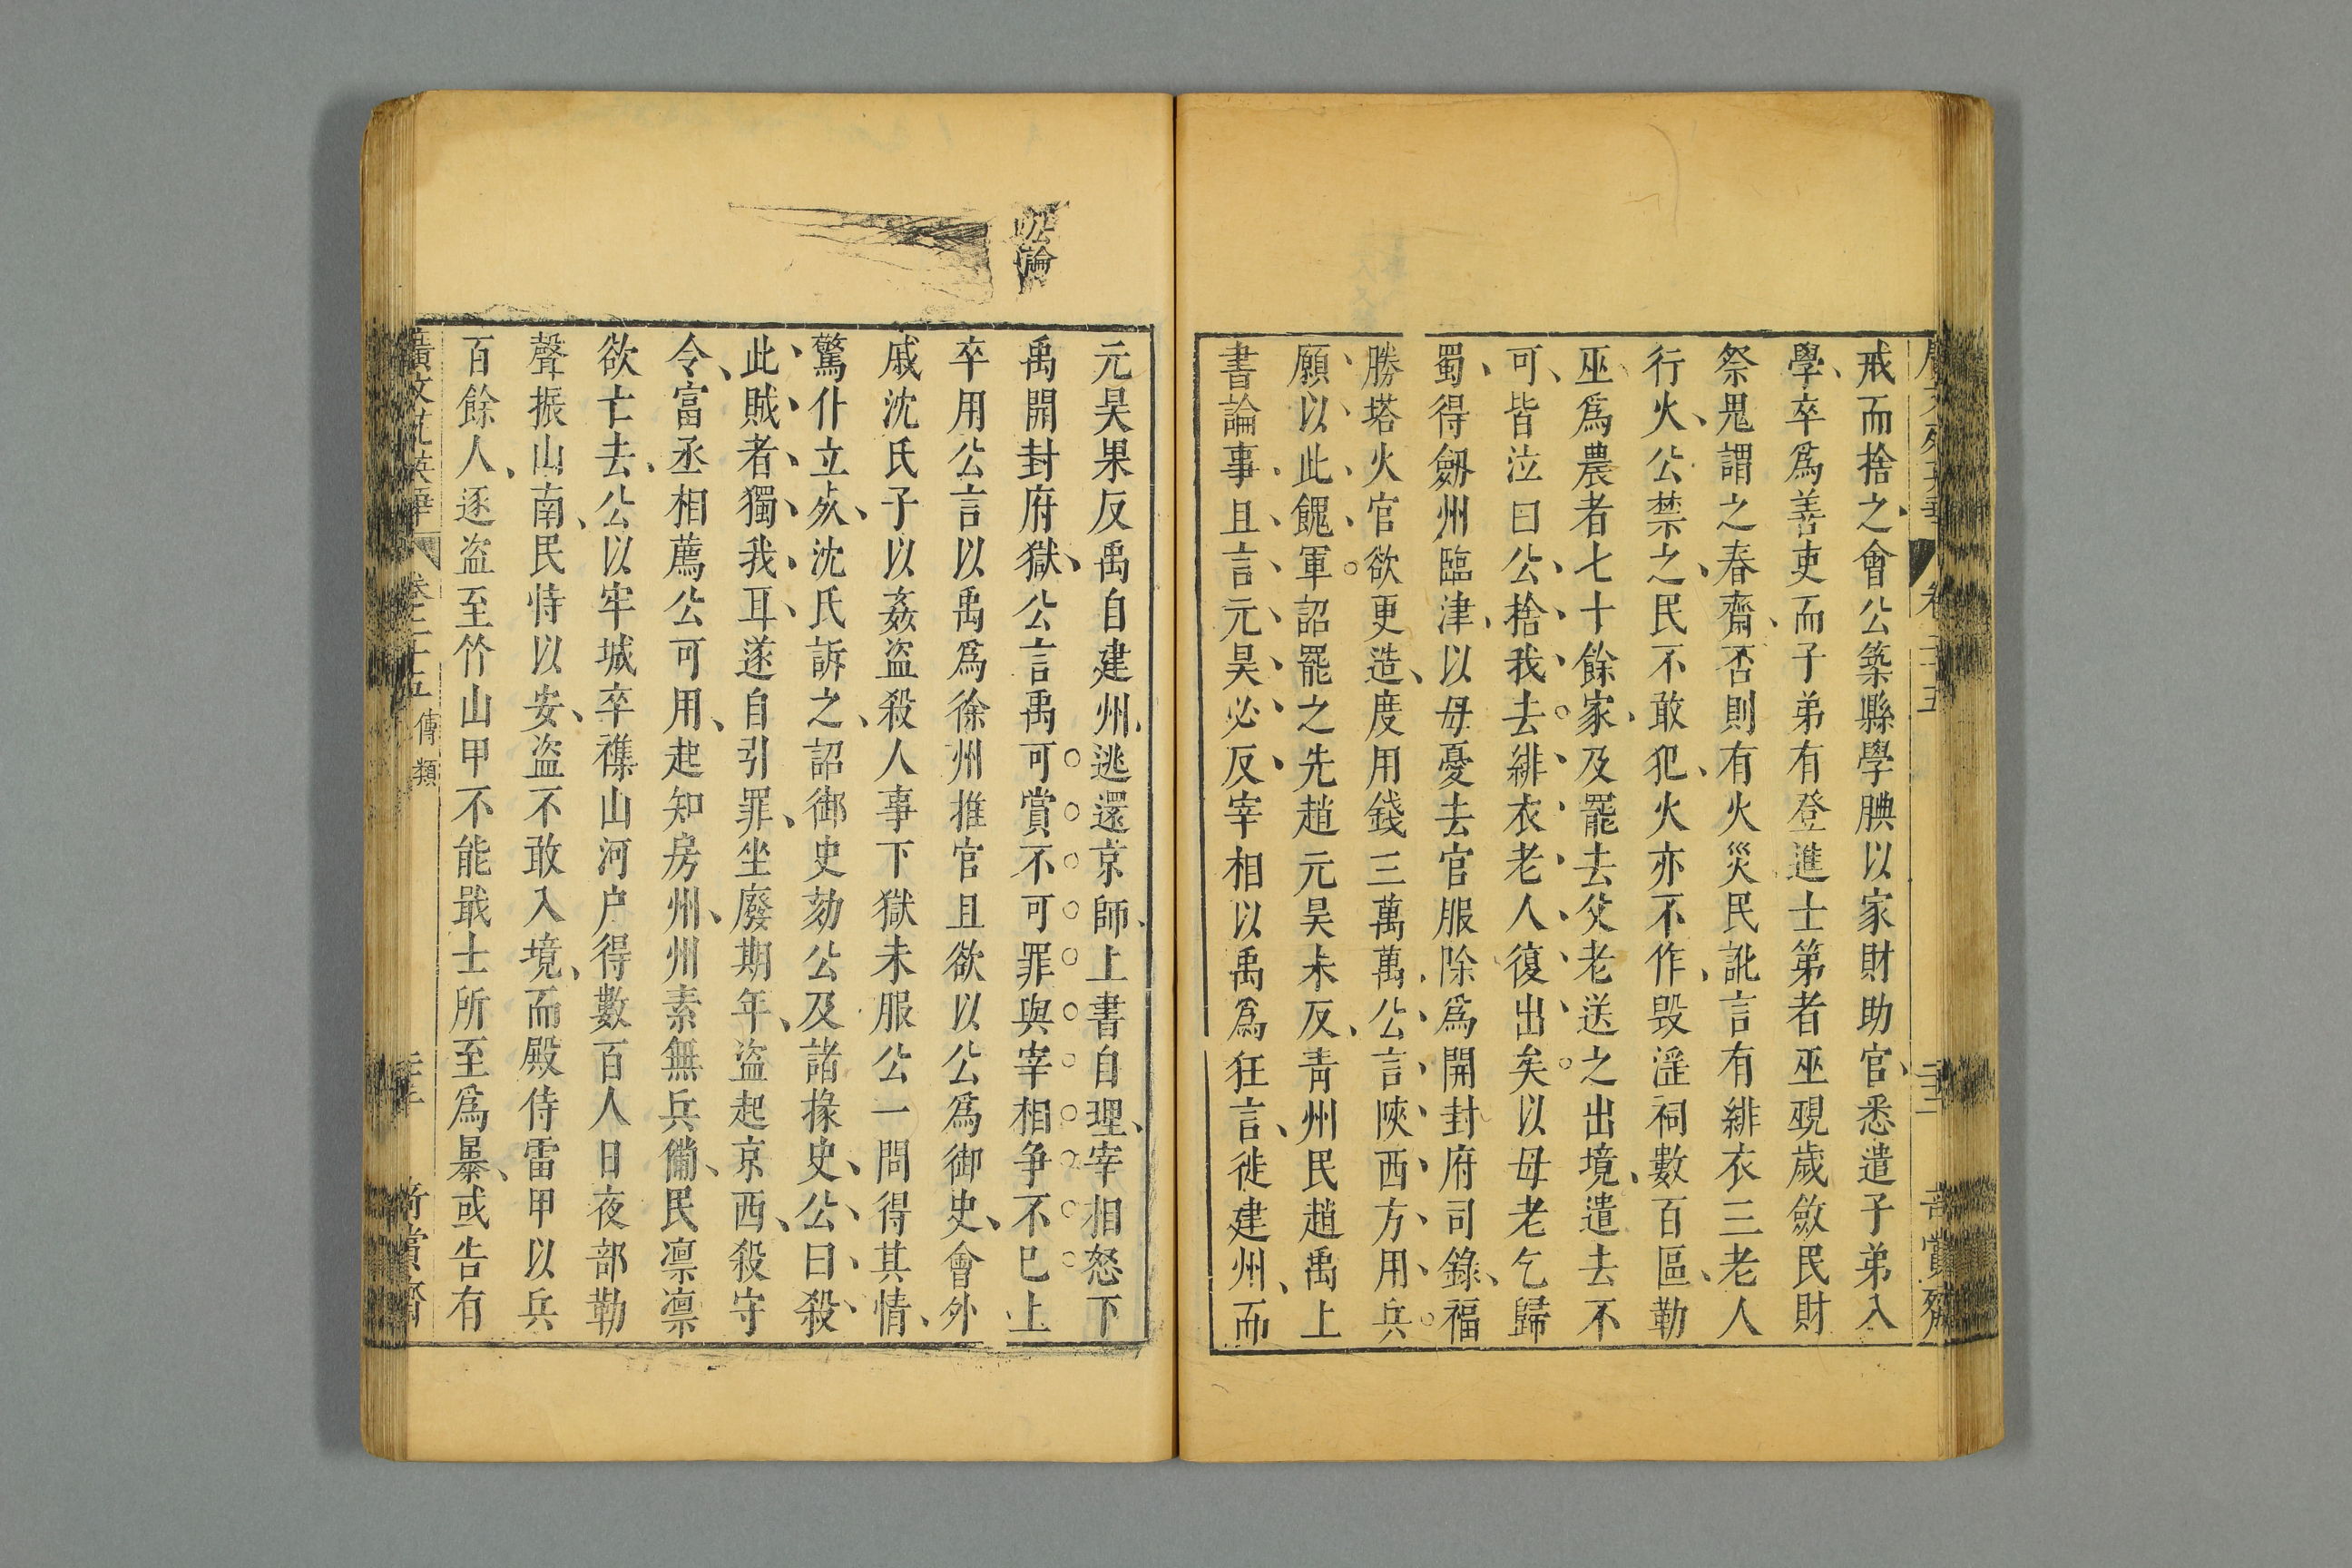 戒而捨之會公築縣學腆以家財助官悉遣子弟入
學卒爲善吏而子弟有登進士第者巫覡歲斂民財
祭鬼謂之春齋否則有火災民訛言有緋衣三老人
行火公禁之民不敢犯火亦不作毀淫祠數百區勒
巫爲農者七十餘家及罷去父老送之出境遣去不
可皆泣曰公捨我去緋衣老人復出矣以母老乞歸
蜀得劒州臨津以母憂去官服除爲開封府司錄福
勝塔火官欲更造度用錢三萬萬公言陝西方用兵
願以此餽軍詔罷之先趙元昊未反青州民趙禹上
書論事且言元昊必反宰相以禹爲狂言徙建州而
元昊果反禹自建州逃還京師上書自理宰相怒下
禹開封府獄公言禹可賞不可罪與宰相争不已上
卒用公言以禹爲徐州推官且欲以公爲御史會外
戚沈氏子以姦盜殺人事下獄未服公一問得其情
驚仆立死沈氏訴之詔御史劾公及諸掾史公曰殺
此賊者獨我耳遂自引罪坐廢期年盜起京西殺守
令富丞相薦公可用起知房州州素無兵備民凛凛
欲亡去公以牢城卒襍山河户得數百人日夜部勒
聲振山南民恃以安盜不敢入境而殿侍雷甲以兵
百餘人逐盜至竹山甲不能戢士所至爲暴或告有
廣文苑英華 卷二十五 傳類
公論